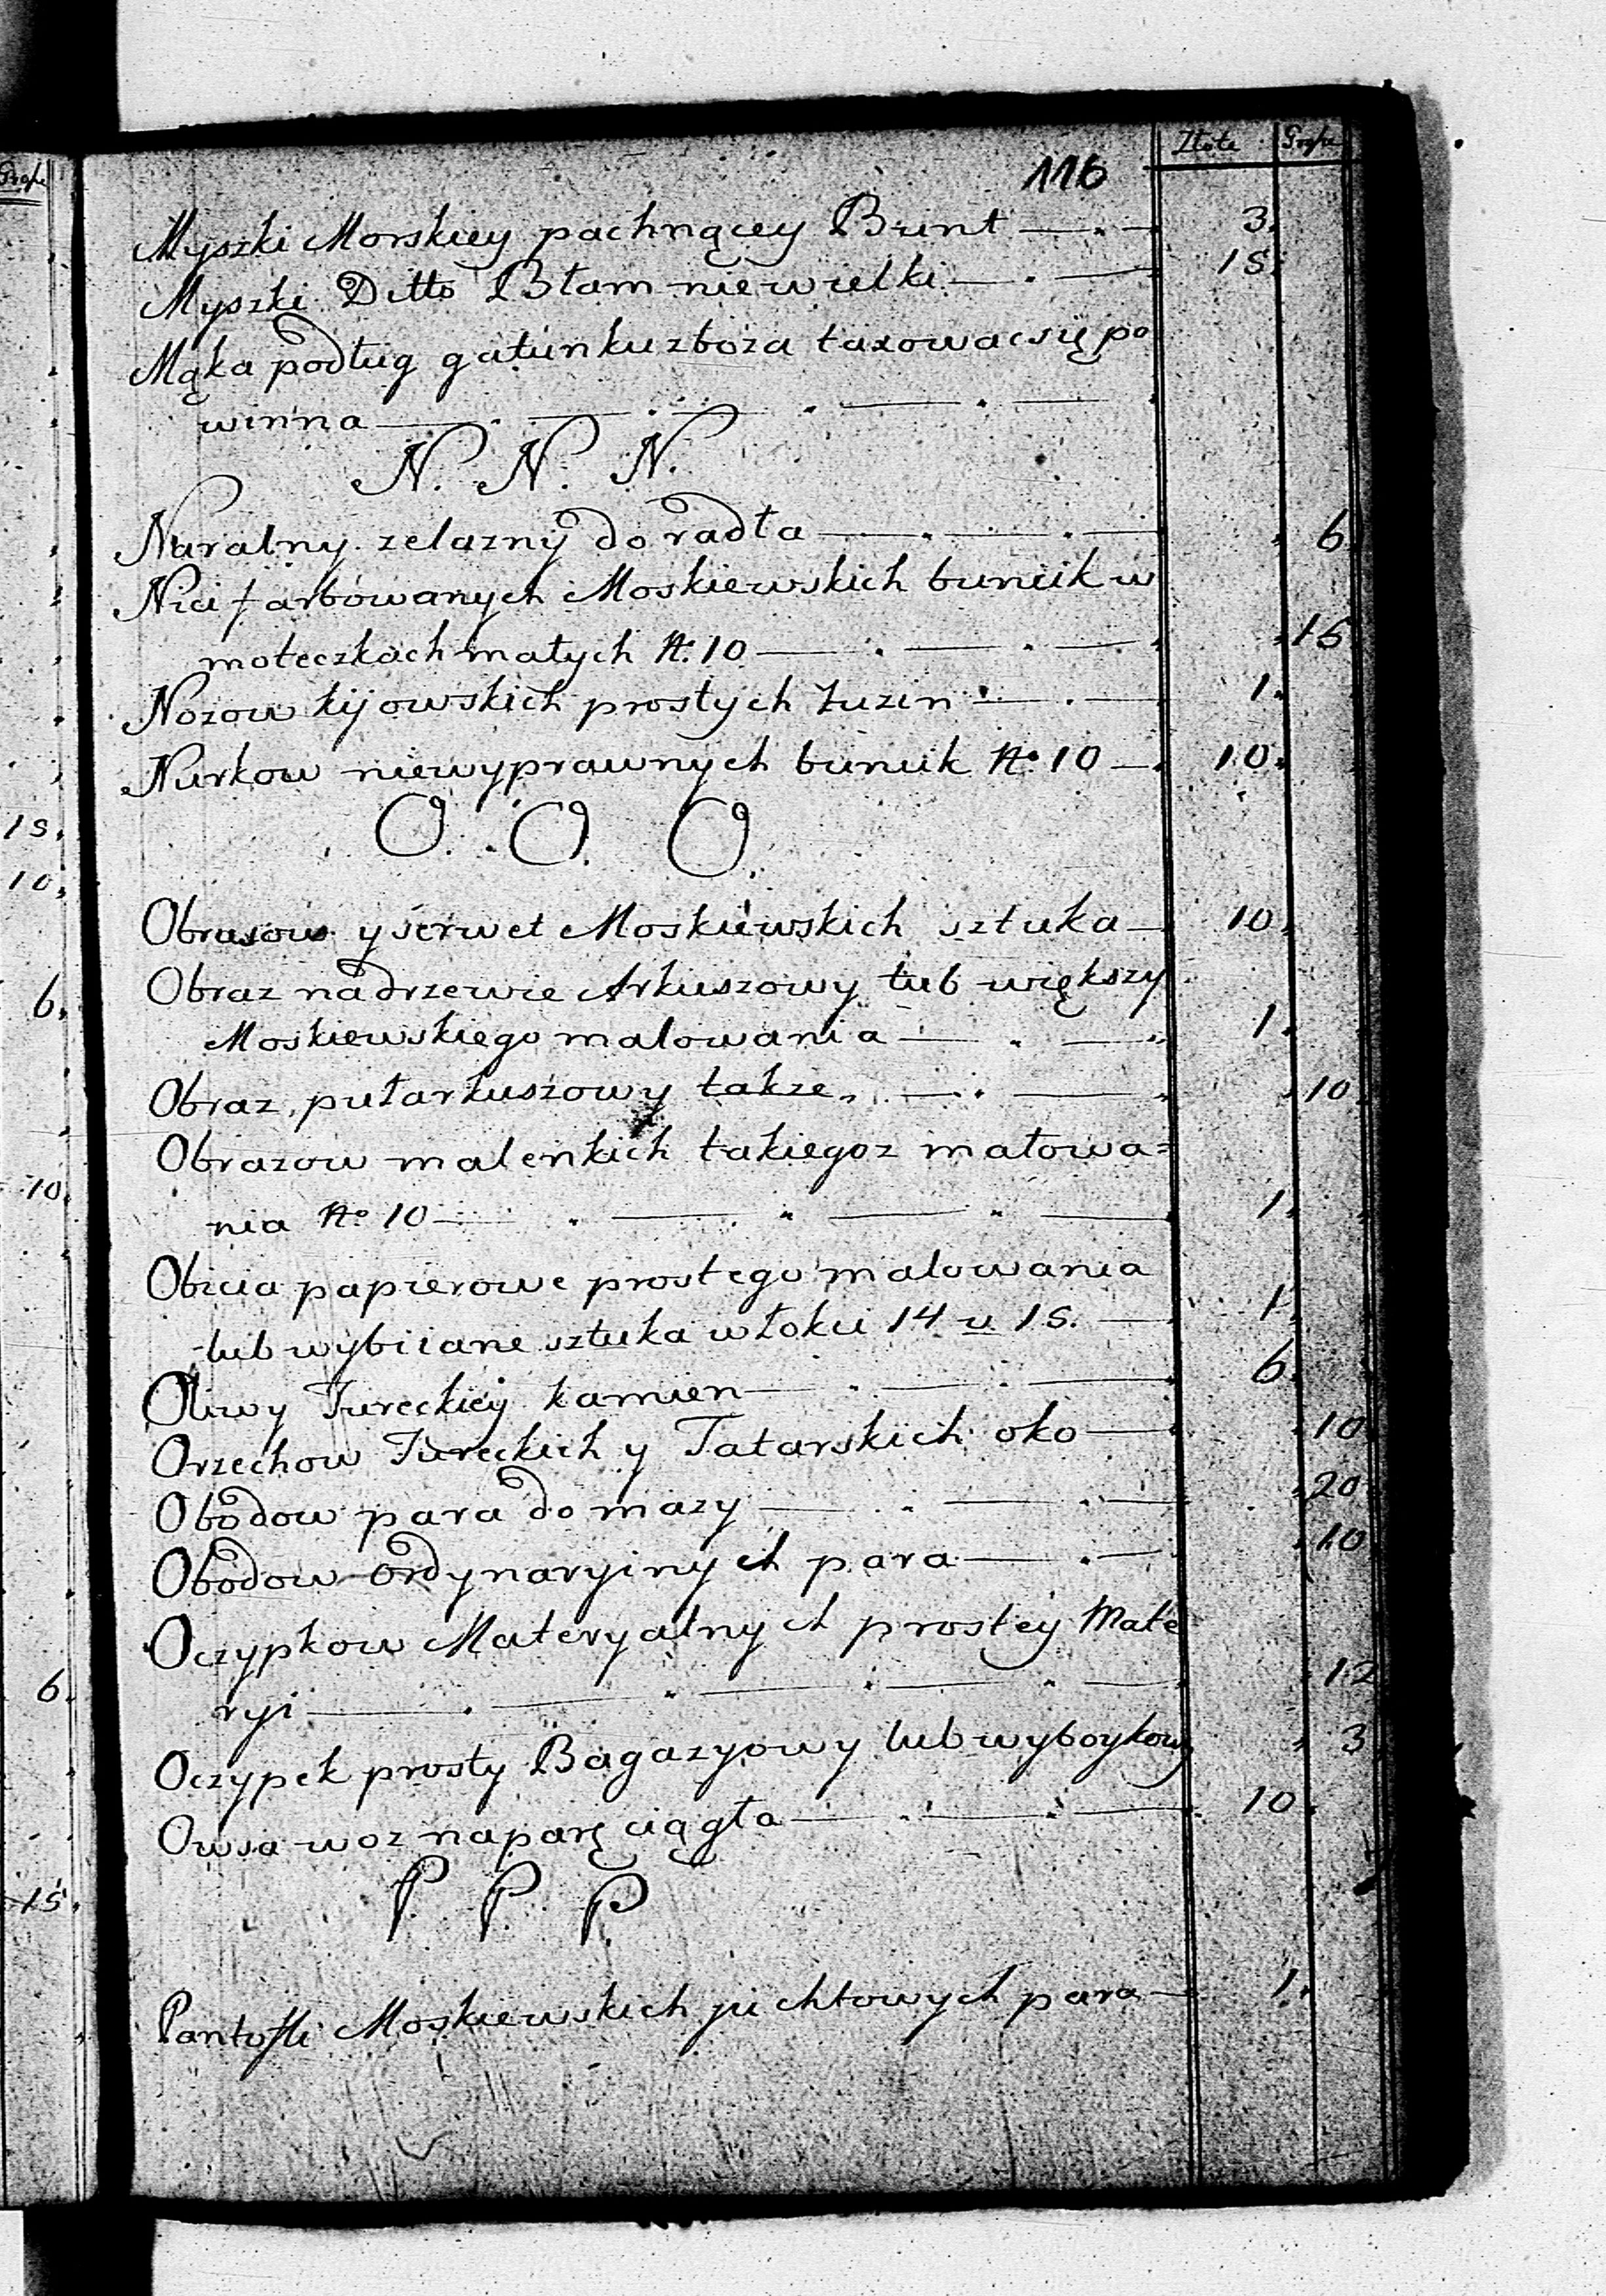 Złote Grosze
116
Myszki Morskiey pachnącey Bunt 3.
Myszki Ditto Błam niewielki 15.
Mąka podług gatunku zboża taxowac się po
winna
N. N. N.
Naralny zelazny do radła 6.
Nici farbowanych Moskiewskich buncik w
moteczkach małych No 10 15.
Nozow kijowskich prostych tuzin 1.
Nurkow niewyprawnych buncik No 10 10.
O. O. O.
Obrusow y serwet Moskiewskich sztuka 10.
Obraz na drzewie Arkuszowy lub większy
Moskiewskiego malowania 1.
Obraz pułarkuszowy takze 10.
Obrazow malenkich takiegoz malowa=
nia No 10 1.
Obicia papierowe prostego malowania
lub wybiiane sztuka włokci 14 u 15. 1.
Oliwy Tureckiey kamien 6.
Orzechow Tureckich y Tatarskich oko 10
Obodow para do mazy 20
Obodow ordynaryinych para 10
Oczypkow Materyalnych prostey Mate
ryi 12
Oczypek prosty Bagazyowy lub wyboykowy 3
Owsa woz na parę ciągła 10.
P. P. P.
Pantofli Moskiewskich juchtowych para 1.
Grosze
15.
10.
6.
10.
6.
15.